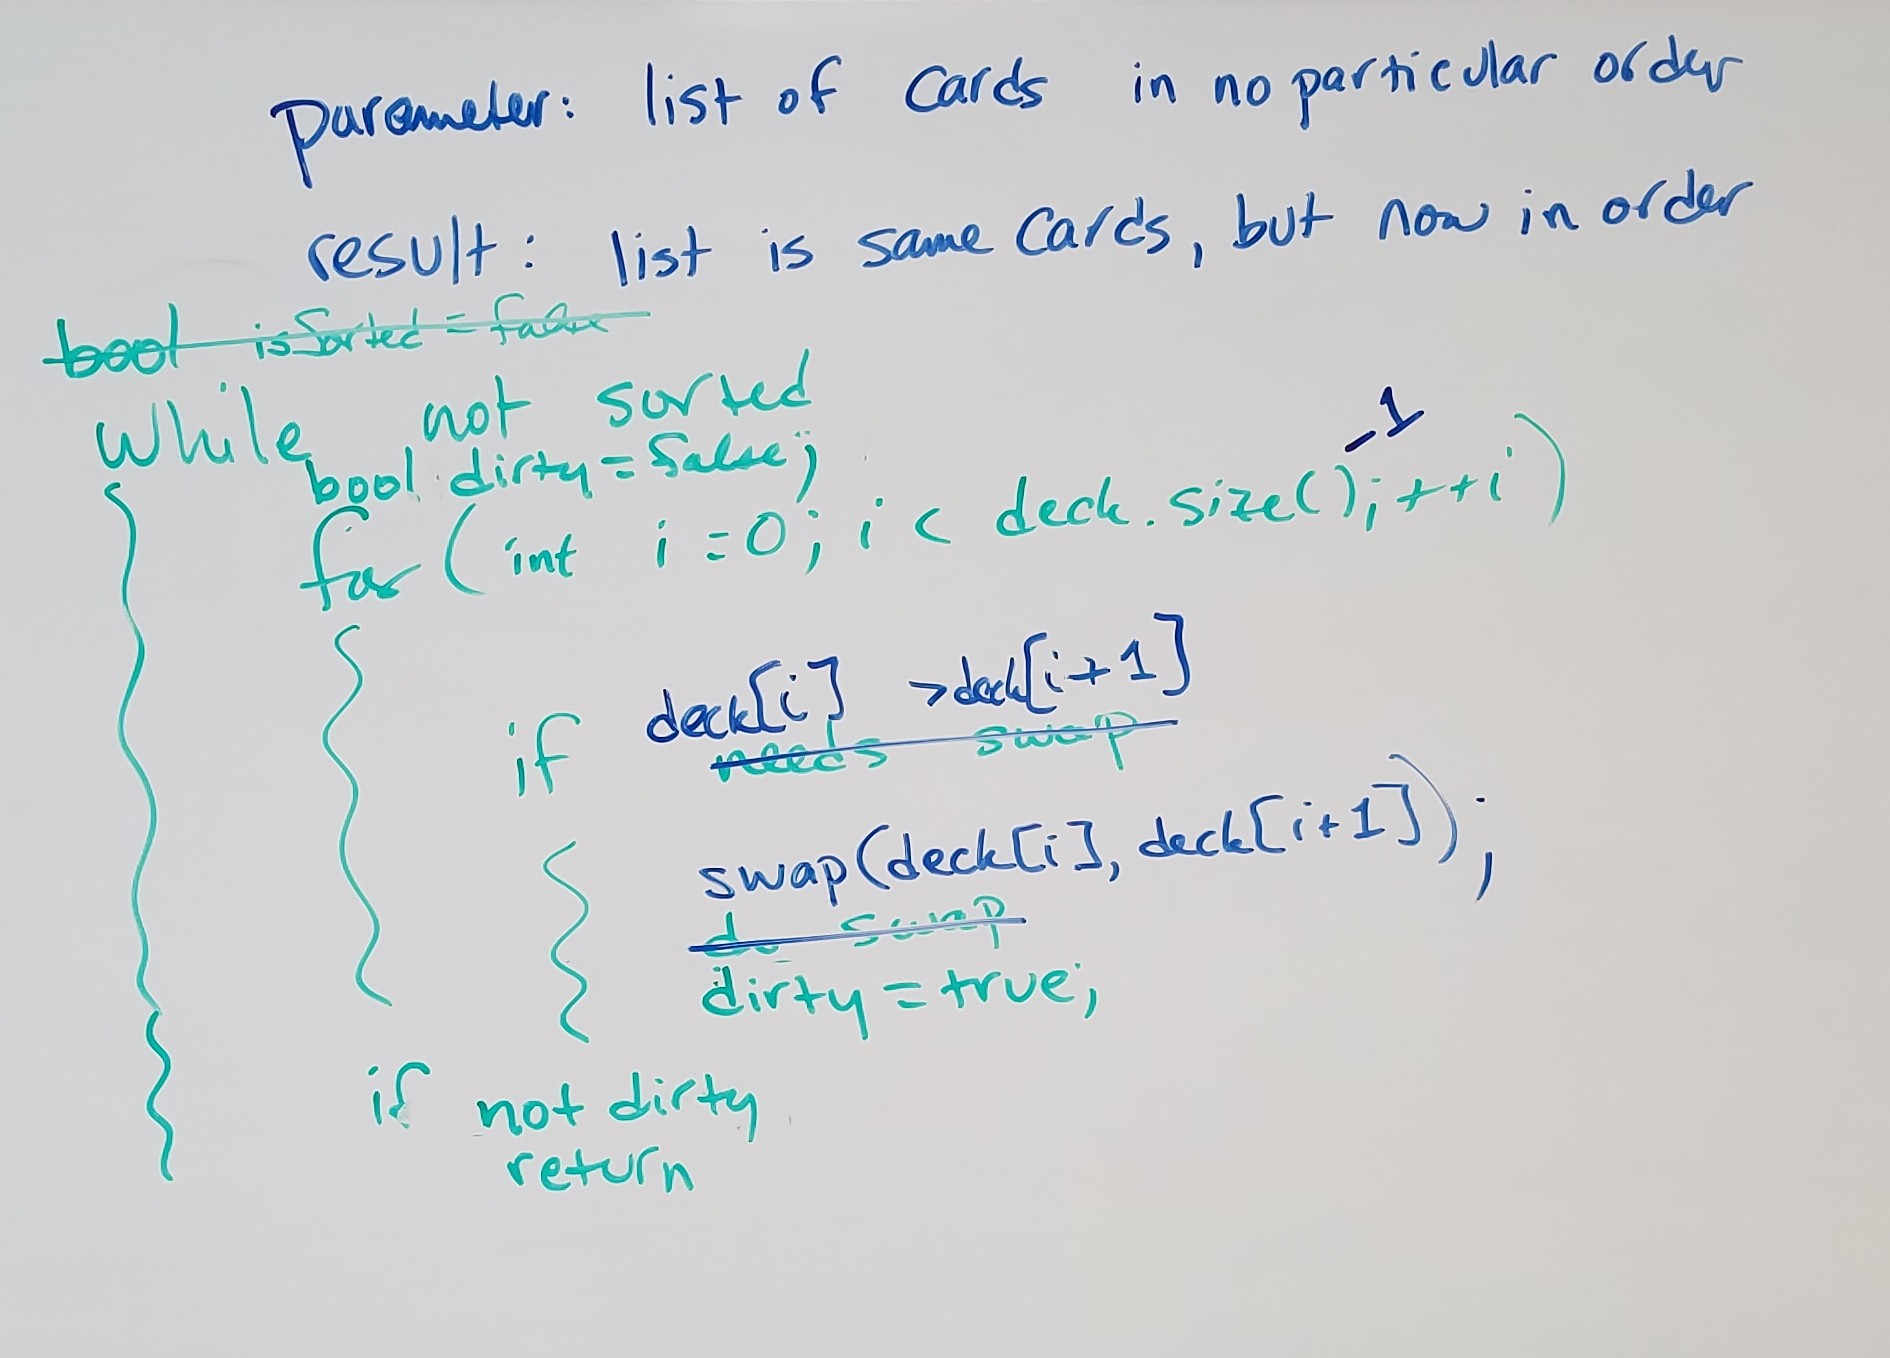 parameter: list of cards in no particular order
result: list is same cards, but now in order
bool isSorted = false
while not sorted
bool dirty = false;
-1
for ( int i = 0; i < deck.size(); ++i )
deck[i] > deck[i+1]
if needs swap
swap(deck[i], deck[i+1]);
do swap
dirty = true;
if not dirty
return